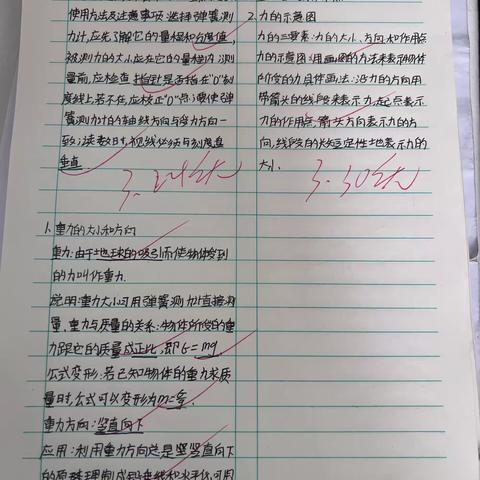 使用方法及注意事项:选择弹簧测
力计,应先了解它的量程和分度值,
被测力的大小应在它的量程内.测
量前,应检查指针是否指在"0"刻
度线上若不在,应校正"0"点;要使弹
簧测力计的轴线方向与受力方向一
致;读数时,视线必须与刻度盘
垂直
1.重力的大小和方向
重力:由于地球的吸引而使物体受到
的力叫作重力.
说明:重力大小可用弹簧测力计直接测
量.重力与质量的关系:物体所受的重
力跟它的质量成正比,即G=mg.
公式变形:若已知物体的重力求质
量时,公式可以变形为m=
重力方向:竖直向下
应用:利用重力方向总是竖直向下
2.力的示意图
力的三要素:力的大小、方向和作用点
力的示意图:用画图的方法来表示物体
所受的力.具体画法:沿力的方向用
带箭头的线段来表示力,起点表示
力的作用点,箭头方向表示力的方
向,线段的长短定性地表示力的
大小.